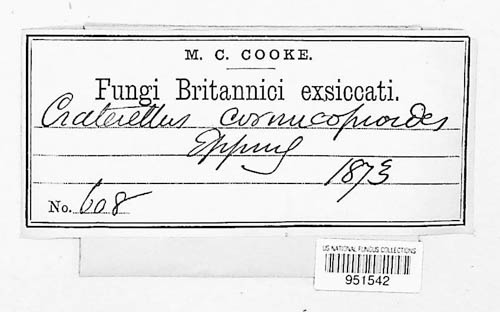 M. C. COOKE.
Fungi Britannici exsiccati.
Craterellus cornucopioides
Epping
1873
No. 608
US NATIONAL FUNGUS COLLECTIONS
951542